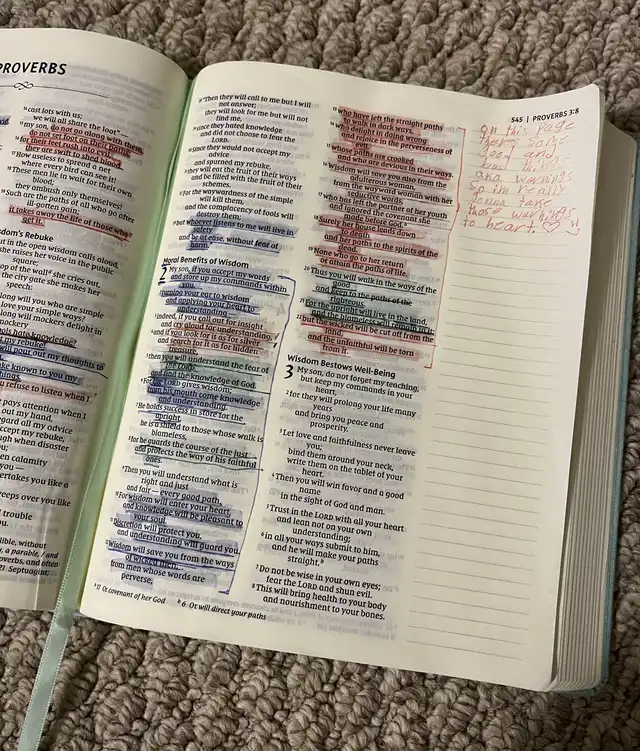 PROVERBS
14 cast lots with us;
we will all share the loot" —
15 my son, do not go along with them,
do not set foot on their paths;
16 for their feet rush into evil,
they are swift to shed blood.
17 How useless to spread a net
where every bird can see it!
18 These men lie in wait for their own
blood;
they ambush only themselves!
19 Such are the paths of all who go after
ill-gotten gain;
it takes away the life of those who
get it.
Wisdom's Rebuke
out in the open wisdom calls aloud,
she raises her voice in the public
square;
top of the wall she cries out,
the city gate she makes her
speech:
long will you who are simple
love your simple ways?
long will mockers delight in
mockery
fools hate knowledge?
at my rebuke!
I will pour out my thoughts to
make known to you my
refuse to listen when I
pays attention when I
out my hand,
disregard all my advice
accept my rebuke,
laugh when disaster
you;
when calamity
overtakes you like a
you —
sweeps over you like
trouble
you.
28 "Then they will call to me but I will
not answer;
they will look for me but will not
find me,
29 since they hated knowledge
and did not choose to fear the
LORD.
30 Since they would not accept my
advice
and spurned my rebuke,
31 they will eat the fruit of their ways
and be filled with the fruit of their
schemes.
32 For the waywardness of the simple
will kill them,
and the complacency of fools will
destroy them;
33 but whoever listens to me will live in
safety
and be at ease, without fear of
harm."
Moral Benefits of Wisdom
2 My son, if you accept my words
and store up my commands within
you,
2 turning your ear to wisdom
and applying your heart to
understanding —
3 indeed, if you call out for insight
and cry aloud for understanding,
4 and if you look for it as for silver
and search for it as for hidden
treasure,
5 then you will understand the fear of
the LORD
and find the knowledge of God.
6 For the LORD gives wisdom;
from his mouth come knowledge
and understanding.
7 He holds success in store for the
upright,
he is a shield to those whose walk is
blameless,
8 for he guards the course of the just
and protects the way of his faithful
ones.
9 Then you will understand what is
right and just
and fair — every good path.
10 For wisdom will enter your heart,
and knowledge will be pleasant to
your soul.
11 Discretion will protect you,
and understanding will guard you.
12 Wisdom will save you from the ways
of wicked men,
from men whose words are
perverse,
a 17 Or covenant of her God
b 6 Or will direct your paths
13 who have left the straight paths
to walk in dark ways,
14 who delight in doing wrong
and rejoice in the perverseness of
evil,
15 whose paths are crooked
and who are devious in their ways.
16 Wisdom will save you also from the
adulterous woman,
from the wayward woman with her
seductive words,
17 who has left the partner of her youth
and ignored the covenant she
made before God.a
18 Surely her house leads down
to death
and her paths to the spirits of the
dead.
19 None who go to her return
or attain the paths of life.
20 Thus you will walk in the ways of the
good
and keep to the paths of the
righteous.
21 For the upright will live in the land,
and the blameless will remain in it;
22 but the wicked will be cut off from the
land,
and the unfaithful will be torn
from it.
Wisdom Bestows Well-Being
3 My son, do not forget my teaching,
but keep my commands in your
heart,
2 for they will prolong your life many
years
and bring you peace and
prosperity.
3 Let love and faithfulness never leave
you;
bind them around your neck,
write them on the tablet of your
heart.
4 Then you will win favor and a good
name
in the sight of God and man.
5 Trust in the LORD with all your heart
and lean not on your own
understanding;
6 in all your ways submit to him,
and he will make your paths
straight.b
7 Do not be wise in your own eyes;
fear the LORD and shun evil.
8 This will bring health to your body
and nourishment to your bones.
545 | PROVERBS 3:8
on this page
theres some
read and
warnings
so im really
gonna take
those warnings
to heart. ♡ :)